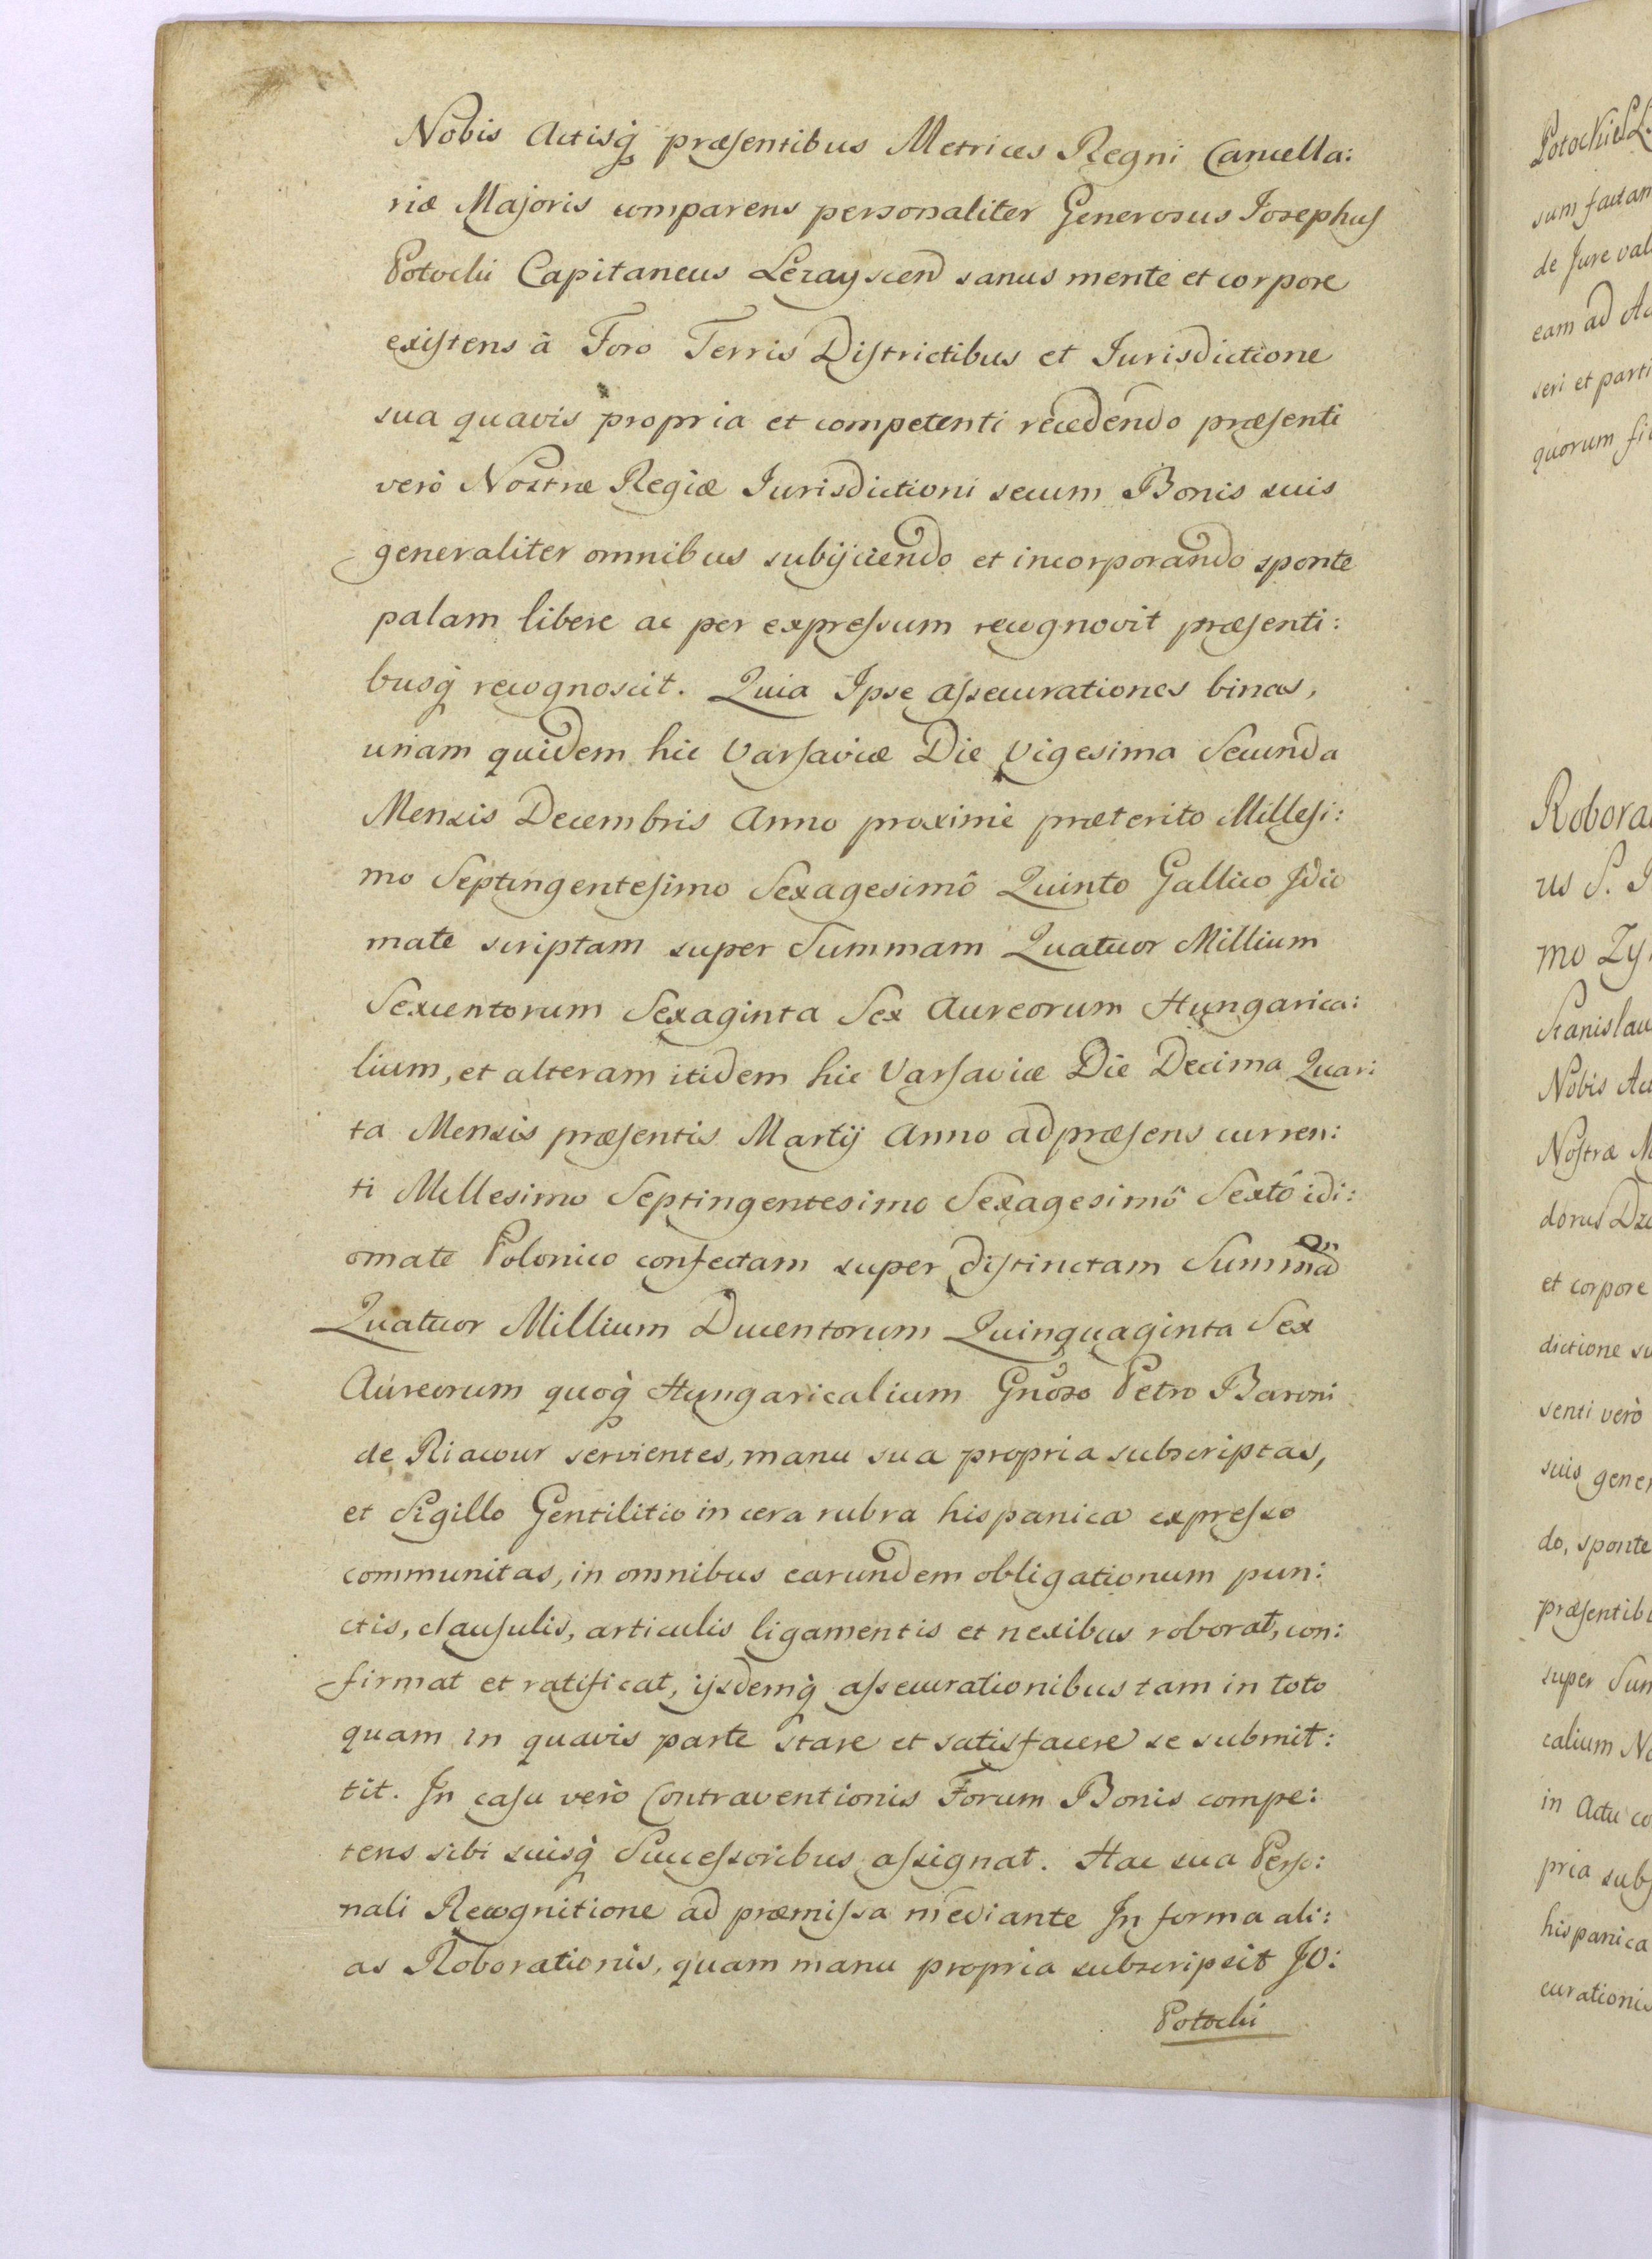 Nobis Actisq̀ præsentibus Metrices Regni Cancella:
riæ Majoris comparens personaliter Generosus Josephus
Potocki Capitaneus Lezayscen sanus mente et corpore
existens à Foro Terris Districtibus et Jurisdictione
sua quavis propria et competenti recedendo præsenti
verò Nostræ Regiæ Jurisdictioni secum Bonis suis
generaliter omnibus subijciendo et incorporando sponte
palam libere ac per expressum recognovit præsenti:
busq̀ recognoscit. Quia Ipse assecurationes binas,
unam quidem hic Varsaviæ Die Vigesima Secunda
Mensis Decembris Anno proximè præterito Millesi:
mo Septingentesimo Sexagesimô Quinto Gallico Idio
mate scriptam super Summam Quatuor Millium
Sexcentorum Sexaginta Sex Aureorum Hungarica:
lium, et alteram itidem hic Varsaviæ Die Decima Quar:
ta Mensis præsentis Martij Anno ad præsens curren:
ti Millesimo Septingentesimo Sexagesimô Sextô idi:
omate Polonico confectam super distinctam Summam
Quatuor Millium Ducentorum Quinquaginta Sex
Aureorum quoq̀ Hungaricalium Gnoso Petro Baroni
de Riacour servientes, manu sua propria subscriptas,
et Sigillo Gentilitio in cera rubra hispanica expresso
communitas, in omnibus earundem obligationum pun:
ctis, clausulis, articulis ligamentis et nexibus roborat, con:
firmat et ratificat, ijsdemq̀ assecurationibus tam in toto
quam in quavis parte stare et satisfacere se submit:
tit. In casu verò Contraventionis Forum Bonis compe:
tens sibi suisq̀ Successoribus assignat. Hac sua Perso:
nali Recognitione ad præmissa mediante In forma ali:
as Roborationis, quam manu propria subscripsit JO:
Potocki
Potocki
sum factam
de Jure val
eam ad Ac
seri et parti
quorum fi
Robora
us S.
mo Zy
Stanislau
Nobis Act
Nostræ M
dorus Dz
et corpore
dictione su
senti verò
suis gener
do, sponte
præsentib
super Sum
calium No
in Actu co
pria subs
hispanica
curationis